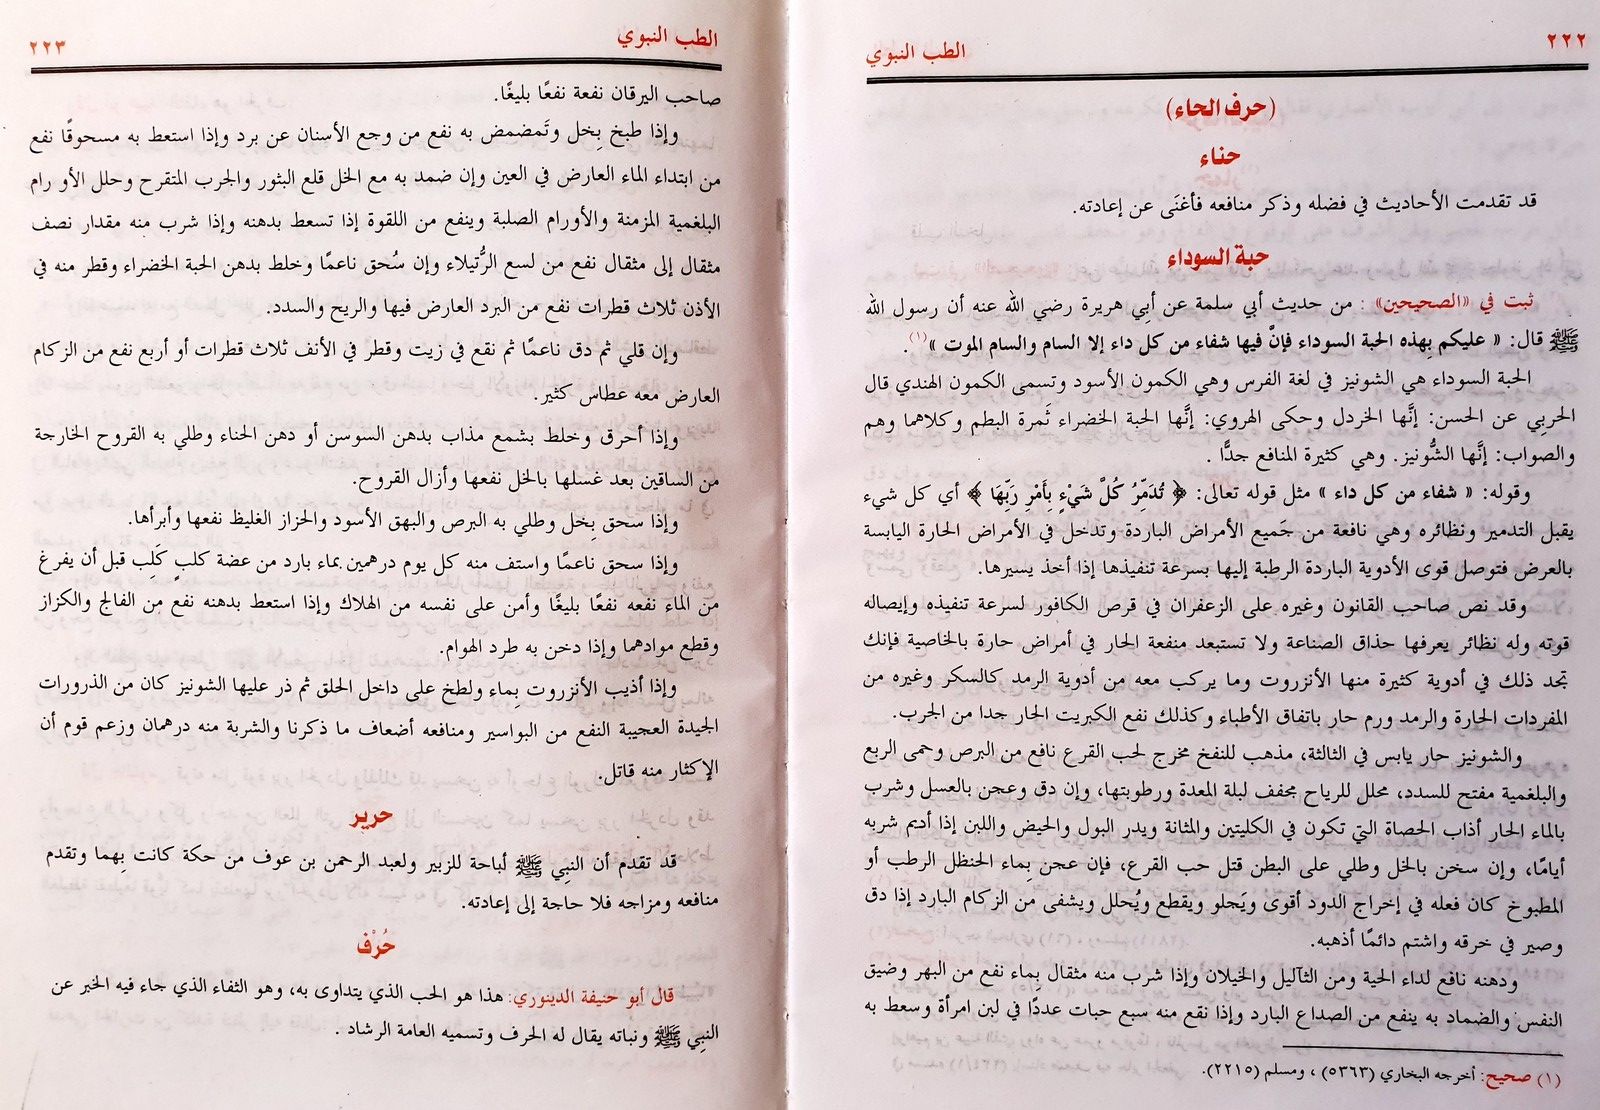 ٢٢٢
الطب النبوي
(حرف الحاء)
حناء
قد تقدمت الأحاديث في فضله وذكر منافعه فأغنَى عن إعادته.
حبة السوداء
ثبت في «الصحيحين» : من حديث أبي سلمة عن أبي هريرة رضي الله عنه أن رسول الله
ﷺ قال: « عليكم بِهذه الحبة السوداء فإنَّ فيها شفاء من كل داء إلا السام والسام الموت »(١).
الحبة السوداء هي الشونيز في لغة الفرس وهي الكمون الأسود وتسمى الكمون الهندي قال
الحربي عن الحسن: إنَّها الخردل وحكى الهروي: إنَّها الحبة الخضراء ثَمرة البطم وكلاهما وهم
والصواب: إنَّها الشُّونيز. وهي كثيرة المنافع جدًّا .
وقوله: « شفاء من كل داء » مثل قوله تعالى: ﴿ تُدَمِّرُ كُلَّ شَيْءٍ بِأَمْرِ رَبِّهَا ﴾ أي كل شيء
يقبل التدمير ونظائره وهي نافعة من جَميع الأمراض الباردة وتدخل في الأمراض الحارة اليابسة
بالعرض فتوصل قوى الأدوية الباردة الرطبة إليها بسرعة تنفيذها إذا أخذ يسيرها.
وقد نص صاحب القانون وغيره على الزعفران في قرص الكافور لسرعة تنفيذه وإيصاله
قوته وله نظائر يعرفها حذاق الصناعة ولا تستبعد منفعة الحار في أمراض حارة بالخاصية فإنك
تجد ذلك في أدوية كثيرة منها الأنزروت وما يركب معه من أدوية الرمد كالسكر وغيره من
المفردات الحارة والرمد ورم حار باتفاق الأطباء وكذلك نفع الكبريت الحار جدا من الجرب.
والشونيز حار يابس في الثالثة، مذهب للنفخ مخرج لحب القرع نافع من البرص وحمى الربع
والبلغمية مفتح للسدد، محلل للرياح مجفف لبلة المعدة ورطوبتها، وإن دق وعجن بالعسل وشرب
بالماء الحار أذاب الحصاة التي تكون في الكليتين والمثانة ويدر البول والحيض واللبن إذا أديم شربه
أيامًا، وإن سخن بالخل وطلي على البطن قتل حب القرع، فإن عجن بِماء الحنظل الرطب أو
المطبوخ كان فعله في إخراج الدود أقوى ويَجلو ويقطع ويُحلل ويشفى من الزكام البارد إذا دق
وصير في خرقه واشتم دائمًا أذهبه.
ودهنه نافع لداء الحية ومن الثآليل والخيلان وإذا شرب منه مثقال بِماء نفع من البهر وضيق
النفس والضماد به ينفع من الصداع البارد وإذا نقع منه سبع حبات عددًا في لبن امرأة وسعط به
(١) صحيح: أخرجه البخاري (٥٣٦٣) ، ومسلم (٢٢١٥).
الطب النبوي
٢٢٣
صاحب اليرقان نفعة نفعًا بليغًا.
وإذا طبخ بِخل وتَمضمض به نفع من وجع الأسنان عن برد وإذا استعط به مسحوقًا نفع
من ابتداء الماء العارض في العين وإن ضمد به مع الخل قلع البثور والجرب المتقرح وحلل الأو رام
البلغمية المزمنة والأورام الصلبة وينفع من اللقوة إذا تسعط بدهنه وإذا شرب منه مقدار نصف
مثقال إلى مثقال نفع من لسع الرُّتيلاء وإن سُحق ناعمًا وخلط بدهن الحبة الخضراء وقطر منه في
الأذن ثلاث قطرات نفع من البرد العارض فيها والريح والسدد.
وإن قلي ثم دق ناعمًا ثم نقع في زيت وقطر في الأنف ثلاث قطرات أو أربع نفع من الزكام
العارض معه عطاس كثير.
وإذا أحرق وخلط بشمع مذاب بدهن السوسن أو دهن الحناء وطلي به القروح الخارجة
من الساقين بعد غسلها بالخل نفعها وأزال القروح.
وإذا سحق بِخل وطلي به البرص والبهق الأسود والحزاز الغليظ نفعها وأبرأها.
وإذا سحق ناعمًا واستف منه كل يوم درهمين بماء بارد من عضة كلبٍ كَلِب قبل أن يفرغ
من الماء نفعه نفعًا بليغًا وأمن على نفسه من الهلاك وإذا استعط بدهنه نفع من الفالج والكزاز
وقطع موادهما وإذا دخن به طرد الهوام.
وإذا أذيب الأنزروت بِماء ولطخ على داخل الحلق ثم ذر عليها الشونيز كان من الذرورات
الجيدة العجيبة النفع من البواسير ومنافعه أضعاف ما ذكرنا والشربة منه درهمان وزعم قوم أن
الإكثار منه قاتل.
حرير
قد تقدم أن النبِي ﷺ أباحة للزبير ولعبد الرحمن بن عوف من حكة كانت بِهما وتقدم
منافعه ومزاجه فلا حاجة إلى إعادته.
حُرْف
قال أبو حنيفة الدينوري: هذا هو الحب الذي يتداوى به، وهو الثفاء الذي جاء فيه الخبر عن
النبِي ﷺ ونباته يقال له الحرف وتسميه العامة الرشاد .